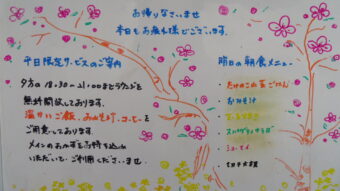 お帰りなさいませ
本日もお疲れ様でございます。
平日限定サービスのご案内
夕方の18:30~21:00までラウンジを
無料開放しております。
温かいご飯、おみそ汁、コーヒーを
ご用意しております。
メインのおかずをお持ち込み
いただいて、ご利用くださいませ
明日の朝食メニュー
・たけのこ五目ごはん
・おみそ汁
・スパゲティサラダ
・切干大根